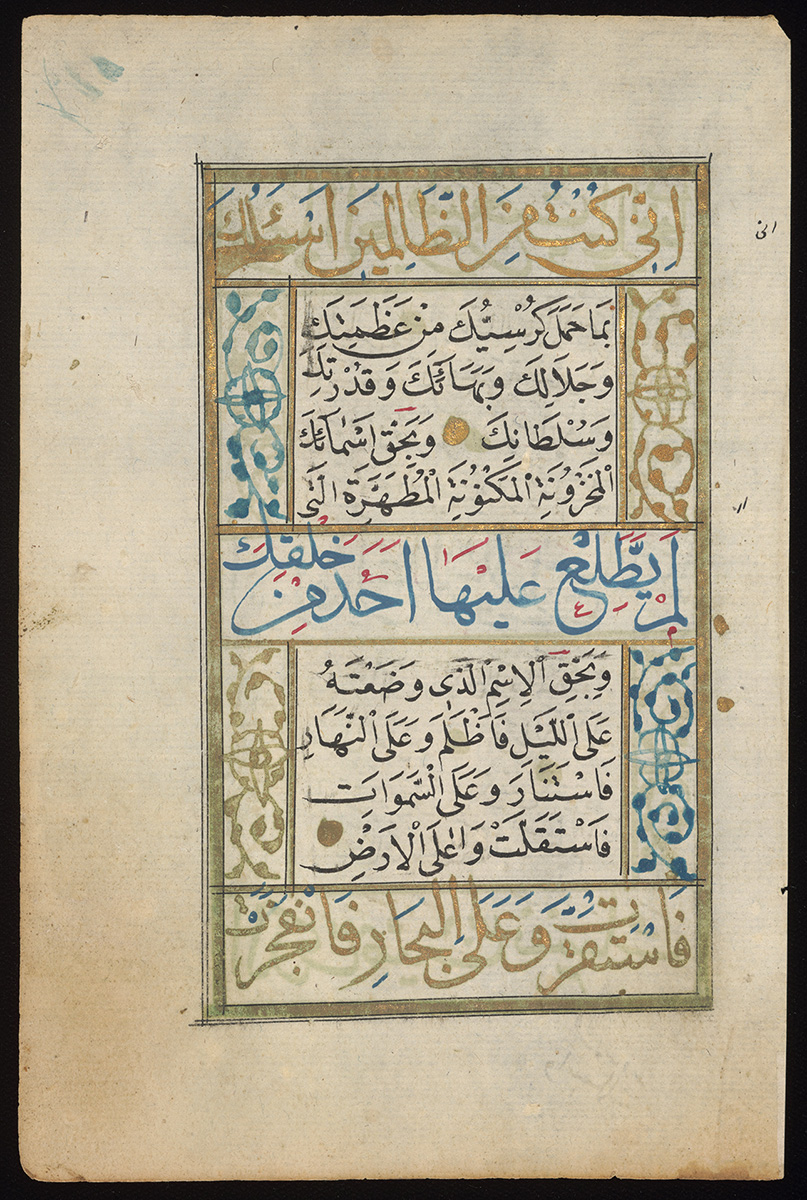 اِنّى كُنْتُ مِنَ الظَّالِمِينَ اَسْئَلُكَ
بِمَا حَمَلَ كُرْسِيُّكَ مِنْ عَظَمَتِكَ
وَجَلَالِكَ وَبَهَائِكَ وَقُدْرَتِكَ
وَسُلْطَانِكَ وَبِحَقِّ اَسْمَائِكَ
الْمَخْزُونَةِ الْمَكْنُونَةِ الْمُطَهَّرَةِ الَّتى
لَمْ يَطَّلِعْ عَلَيْهَا اَحَدٌ مِنْ خَلْقِكَ
وَبِحَقِّ الْاِسْمِ الَّذى وَضَعْتَهُ
عَلَى اللَّيْلِ فَاَظْلَمَ وَعَلَى النَّهَارِ
فَاسْتَنَارَ وَعَلَى السَّمَوَاتِ
فَاسْتَقَلَّتْ وَعَلَى الْاَرْضِ
فَاسْتَقَرَّتْ وَعَلَى الْبِحَارِ فَانْفَجَرَتْ